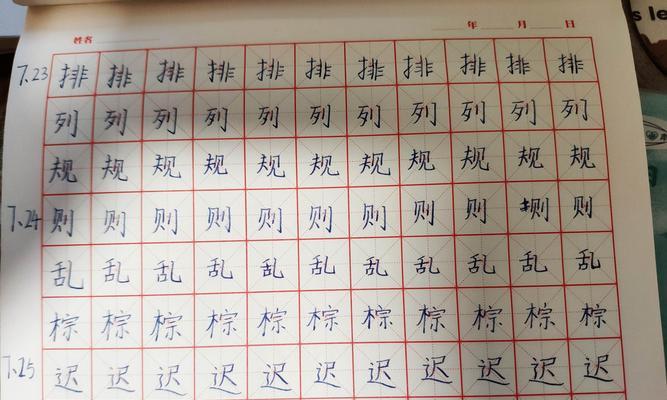 s le
姓名 年 月 日
7.23 排 排 排 排 排 排 排 排 排 排 排
列 列 列 列 列 列 列 列 列 列 列
规 规 规 规 规 规 规 规 规 规 规
7.24 则 则 则 则 则 则 则 则 则 则
乱 乱 乱 乱 乱 乱 乱 乱 乱 乱 乱
棕 棕 棕 棕 棕 棕 棕 棕 棕 棕 棕
7.25 迟 迟 迟 迟 迟 迟 迟 迟 迟 迟 迟